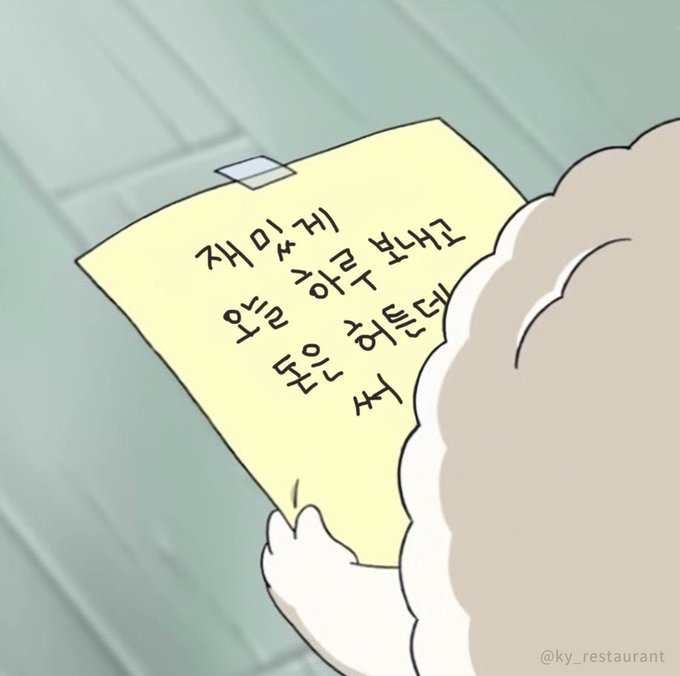 재밌게
오늘 하루 보내고
돈은 허튼데
써
@ky_restaurant